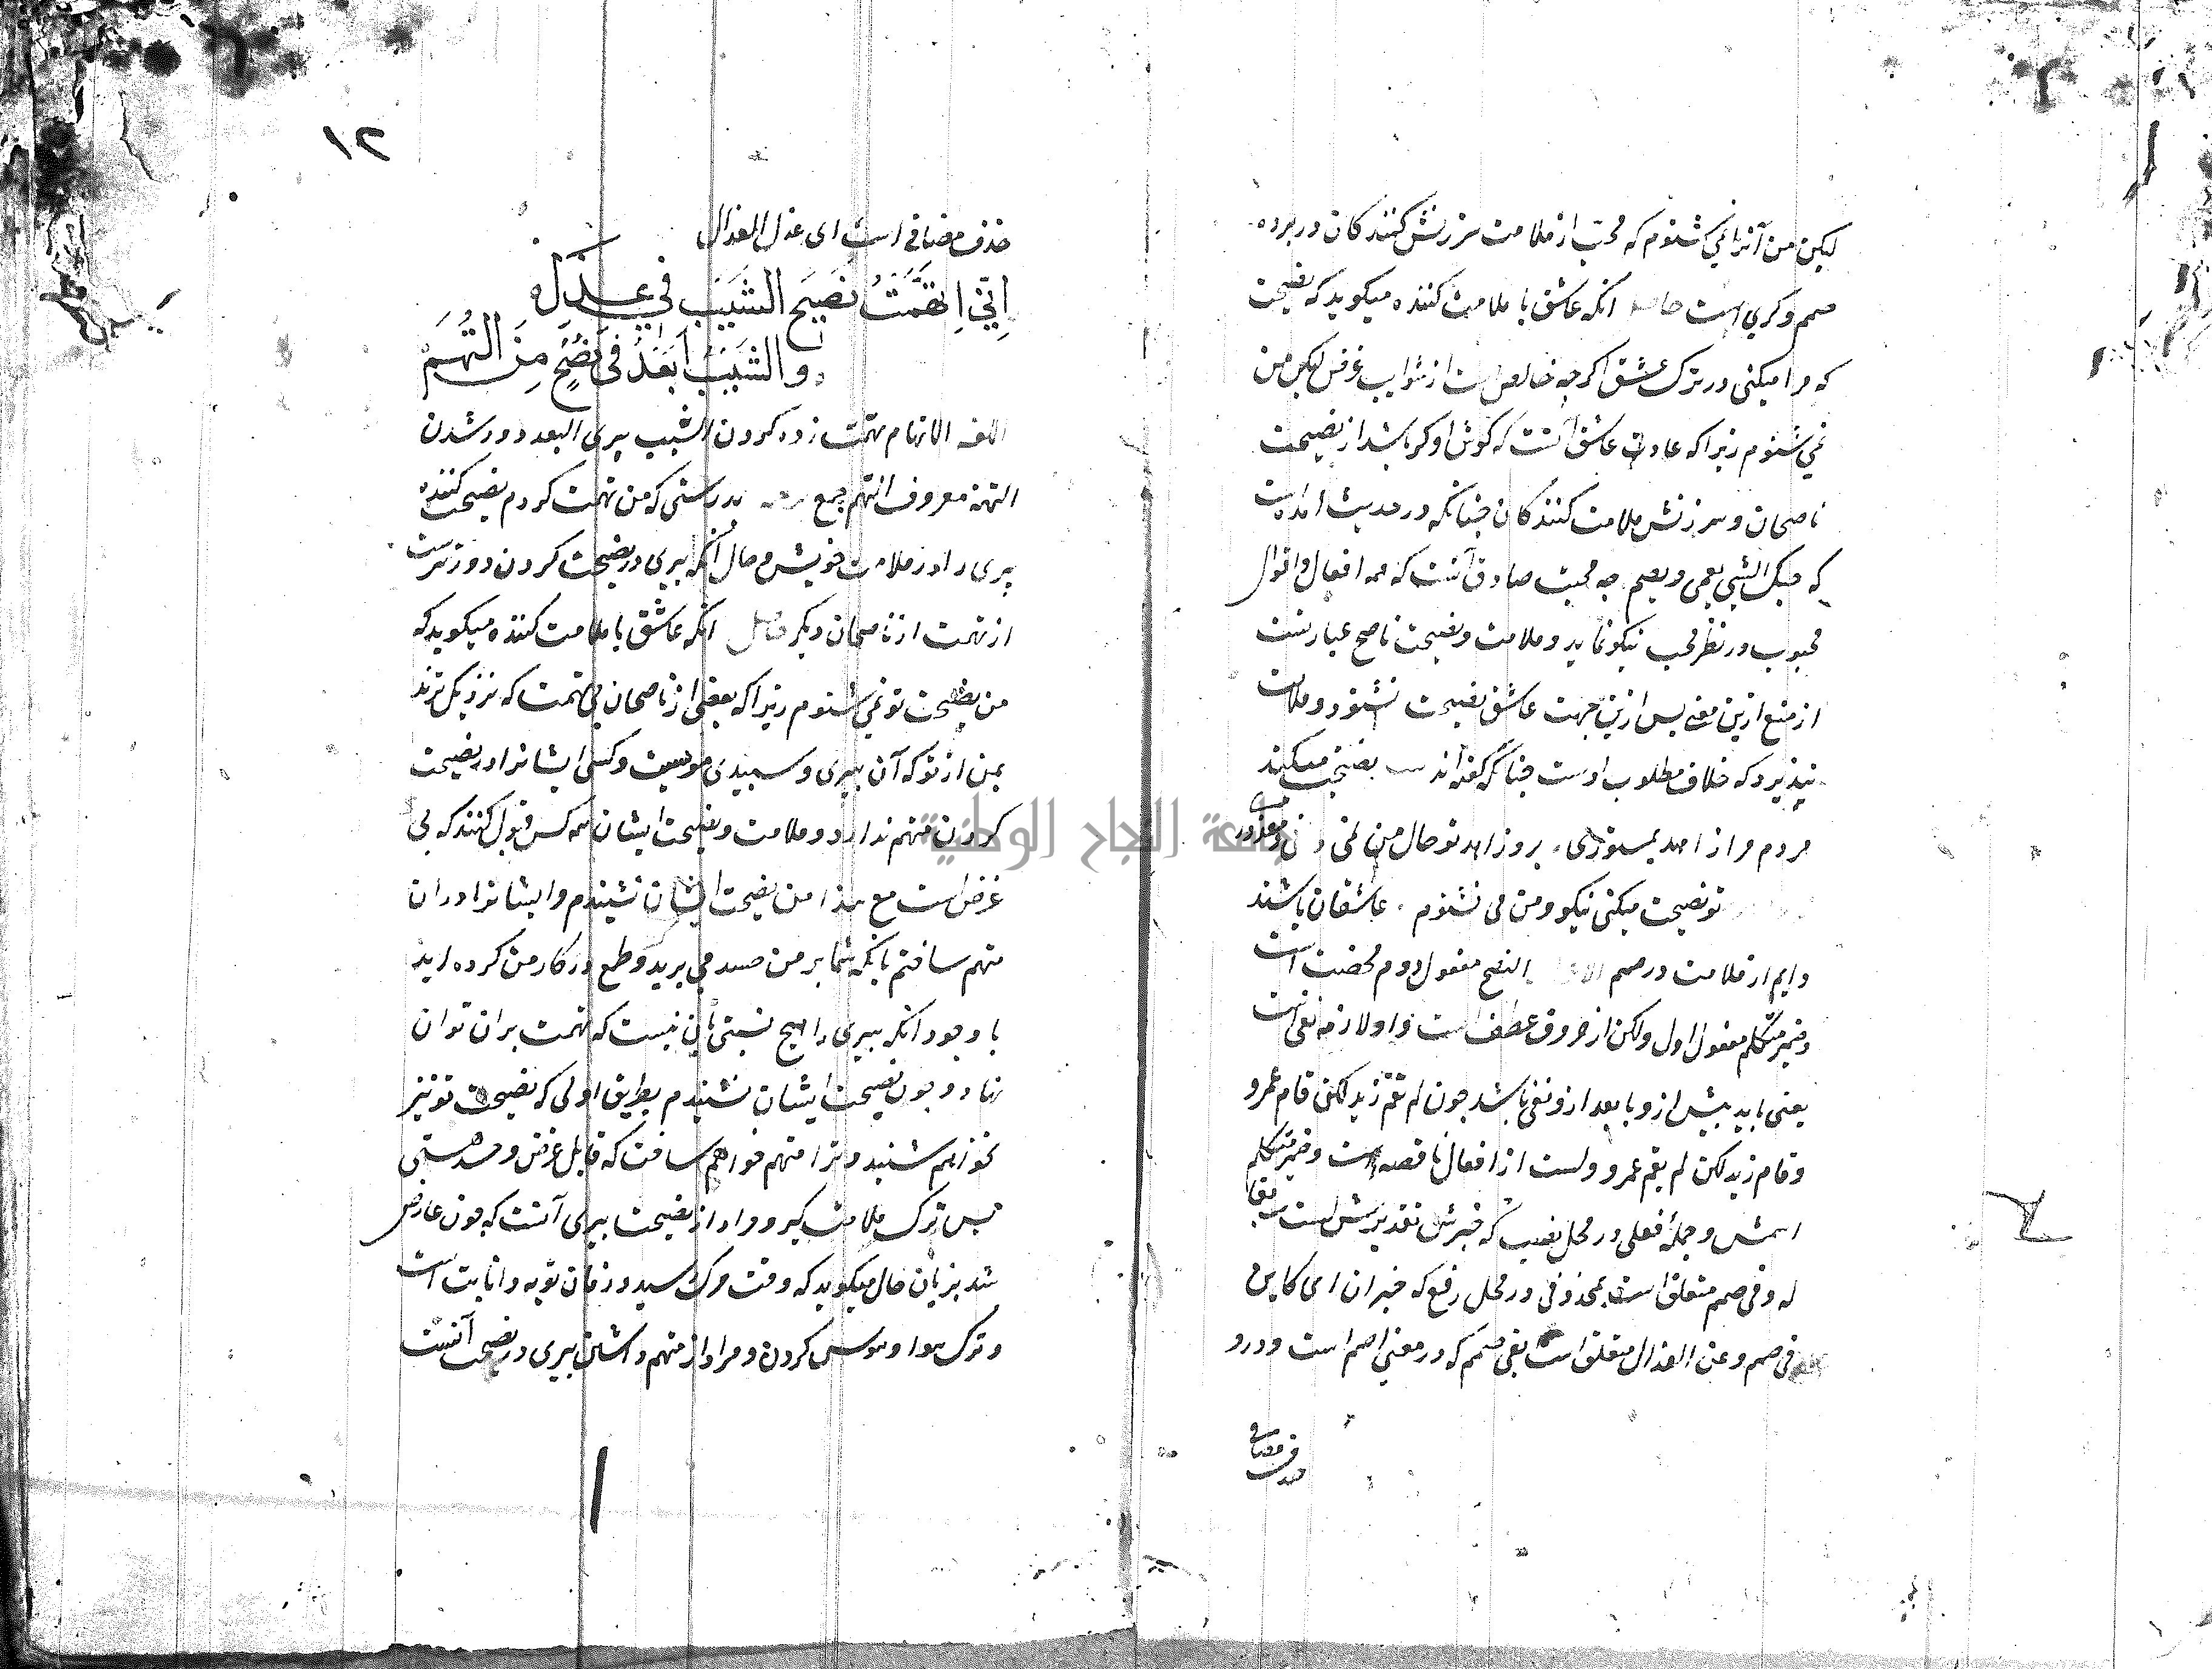 لیکن من آنرا نمی شنوم که محبّ از ملامت سرزنش کنندکان در پرده
صمم و کری است حاصل انکه عاشق با ملامت کننده میکوید که نصیحت
که مرا میکنی در ترک عشق اکرچه خالص است از شوایب غرض لیکن من
نمی شنوم زیرا که عادت عاشق آنست که کوش او کر باشد از نصیحت
ناصحان و سرزنش ملامت کنندکان چنانکه در حدیث امده است
که حبک الشیٔ یعمی و یصم چه محبت صادق آنست که همه افعال و اقوال
محبوب در نظر محب نیکو نماید و ملامت و نصیحت ناصح عبارتست
از منع ازین معنی پس ازین جهت عاشق نصیحت نشنود و ملامت
نپذیرد که خلاف مطلوب اوست چنانکه کفته اند نصیحت میکنند
مردم مرا زاهد بمستوری برو زاهد تو حال من نمی دانی و معذوری
تو نصیحت میکنی نیکو و من می نشنوم عاشقان باشند
دایم از ملامت در صمم النصح مفعول دوم محضت است
و ضمیر متکلم مفعول اول و لکن از حروف عطف است و اولا زمه نفی است
یعنی باید پیش ازو یا بعد ازو نفی باشد چون لم یقم زید لکن قام عمرو
و قام زید لکن لم یقم عمرو و لست از افعال ناقصه است و ضمیر متکلم
اسمش و جملهٔ فعلی در محل نصب که خبرش تقدیرش لست سامعا
له و فی صمم متعلق است بمحذوفی در محل رفع که خبر ان ای کاین
فی صمم و عن العذال متعلق است بفی صمم که در معنی اصم است و درو
حذف مضافی
۱۲
حذف مضافی است ای عذل العذال
اِنِّي اِتَّهَمْتُ نَصِيحَ الشَّيْبِ فِي عَذَلِ
وَالشَّيْبُ اَبْعَدُ فِي نُصْحٍ مِنَ التُّهَمِ
اللغه الاتهام تهمت زده کردن الشیب پیری البعد دور شدن
التهمة معروف التهم جمع بدرستی که من تهمت کردم نصیحت کننده
پیری را در ملامت خویش و حال آنکه پیری در نصیحت کردن دورترست
از تهمت از ناصحان دیکر حاصل انکه عاشق با ملامت کننده میکوید که
من نصیحت تو نمی شنوم زیرا که بعضی از ناصحان بی تهمت که نزدیک ترند
بمن از تو که آن پیری و سپیدی مویست و کسی ایشانرا در نصیحت
کردن متهم ندارد و ملامت و نصیحت ایشان همه کس قبول کنند که بی
غرض است مع هذا من نصیحت ایشان نشنیدم و ایشانرا در ان
متهم ساختم بانکه شما بر من حسد می برید و طمع در کار من کرده اید
با وجود انکه پیری را هیچ نسبتی باین نیست که تهمت بران توان
نهاد و چون نصیحت ایشان نشنیدم بطریق اولی که نصیحت تو نیز
نخواهم شنید و ترا متهم خواهم ساخت که قابل غرض و حسد هستی
پس ترک ملامت کیر و مراد از نصیحت پیری آنست که چون عارض
شد بزبان حال میکوید که وقت مرک رسید و زمان توبه و انابت است
و ترک هوا و هوس کردن و مراد از متهم داشتن پیری در نصیحت آنست